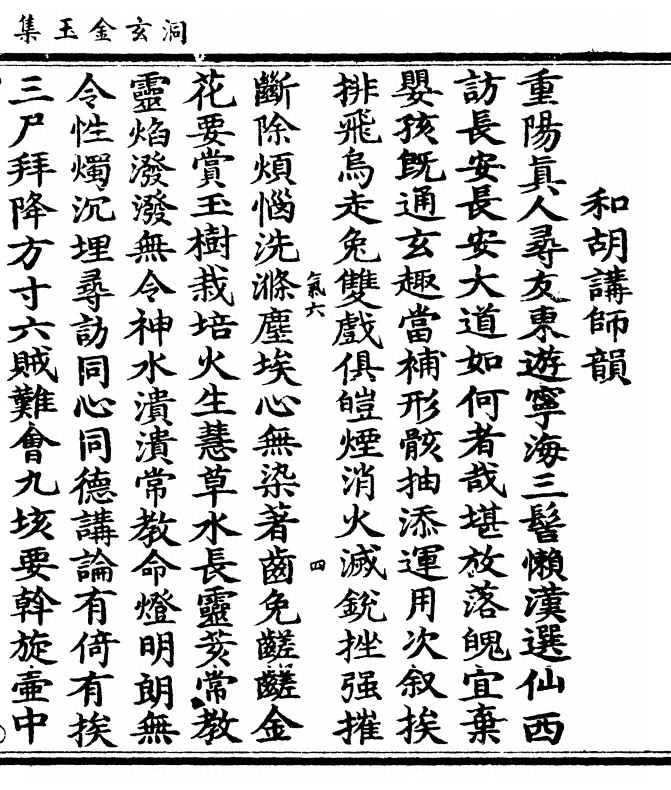 洞玄金玉集
和胡講師韻
重陽眞人尋友東遊寧海三髻懶漢選仙西
訪長安長安大道如何者哉堪放落魄宜棄
嬰孩旣通玄趣當補形骸抽添運用次叙挨
排飛烏走兔雙戲俱皚煙消火滅銳挫强摧
氣六 四
斷除煩惱洗滌塵埃心無染著齒免齹齹金
花要賞玉樹栽培火生慧草水長靈荄常教
靈焰潑潑無令神水潰潰常教命燈明朗無
令性燭沉埋尋訪同心同德講論有倚有挨
三尸拜降方寸六賊難會九垓要斡旋壷中